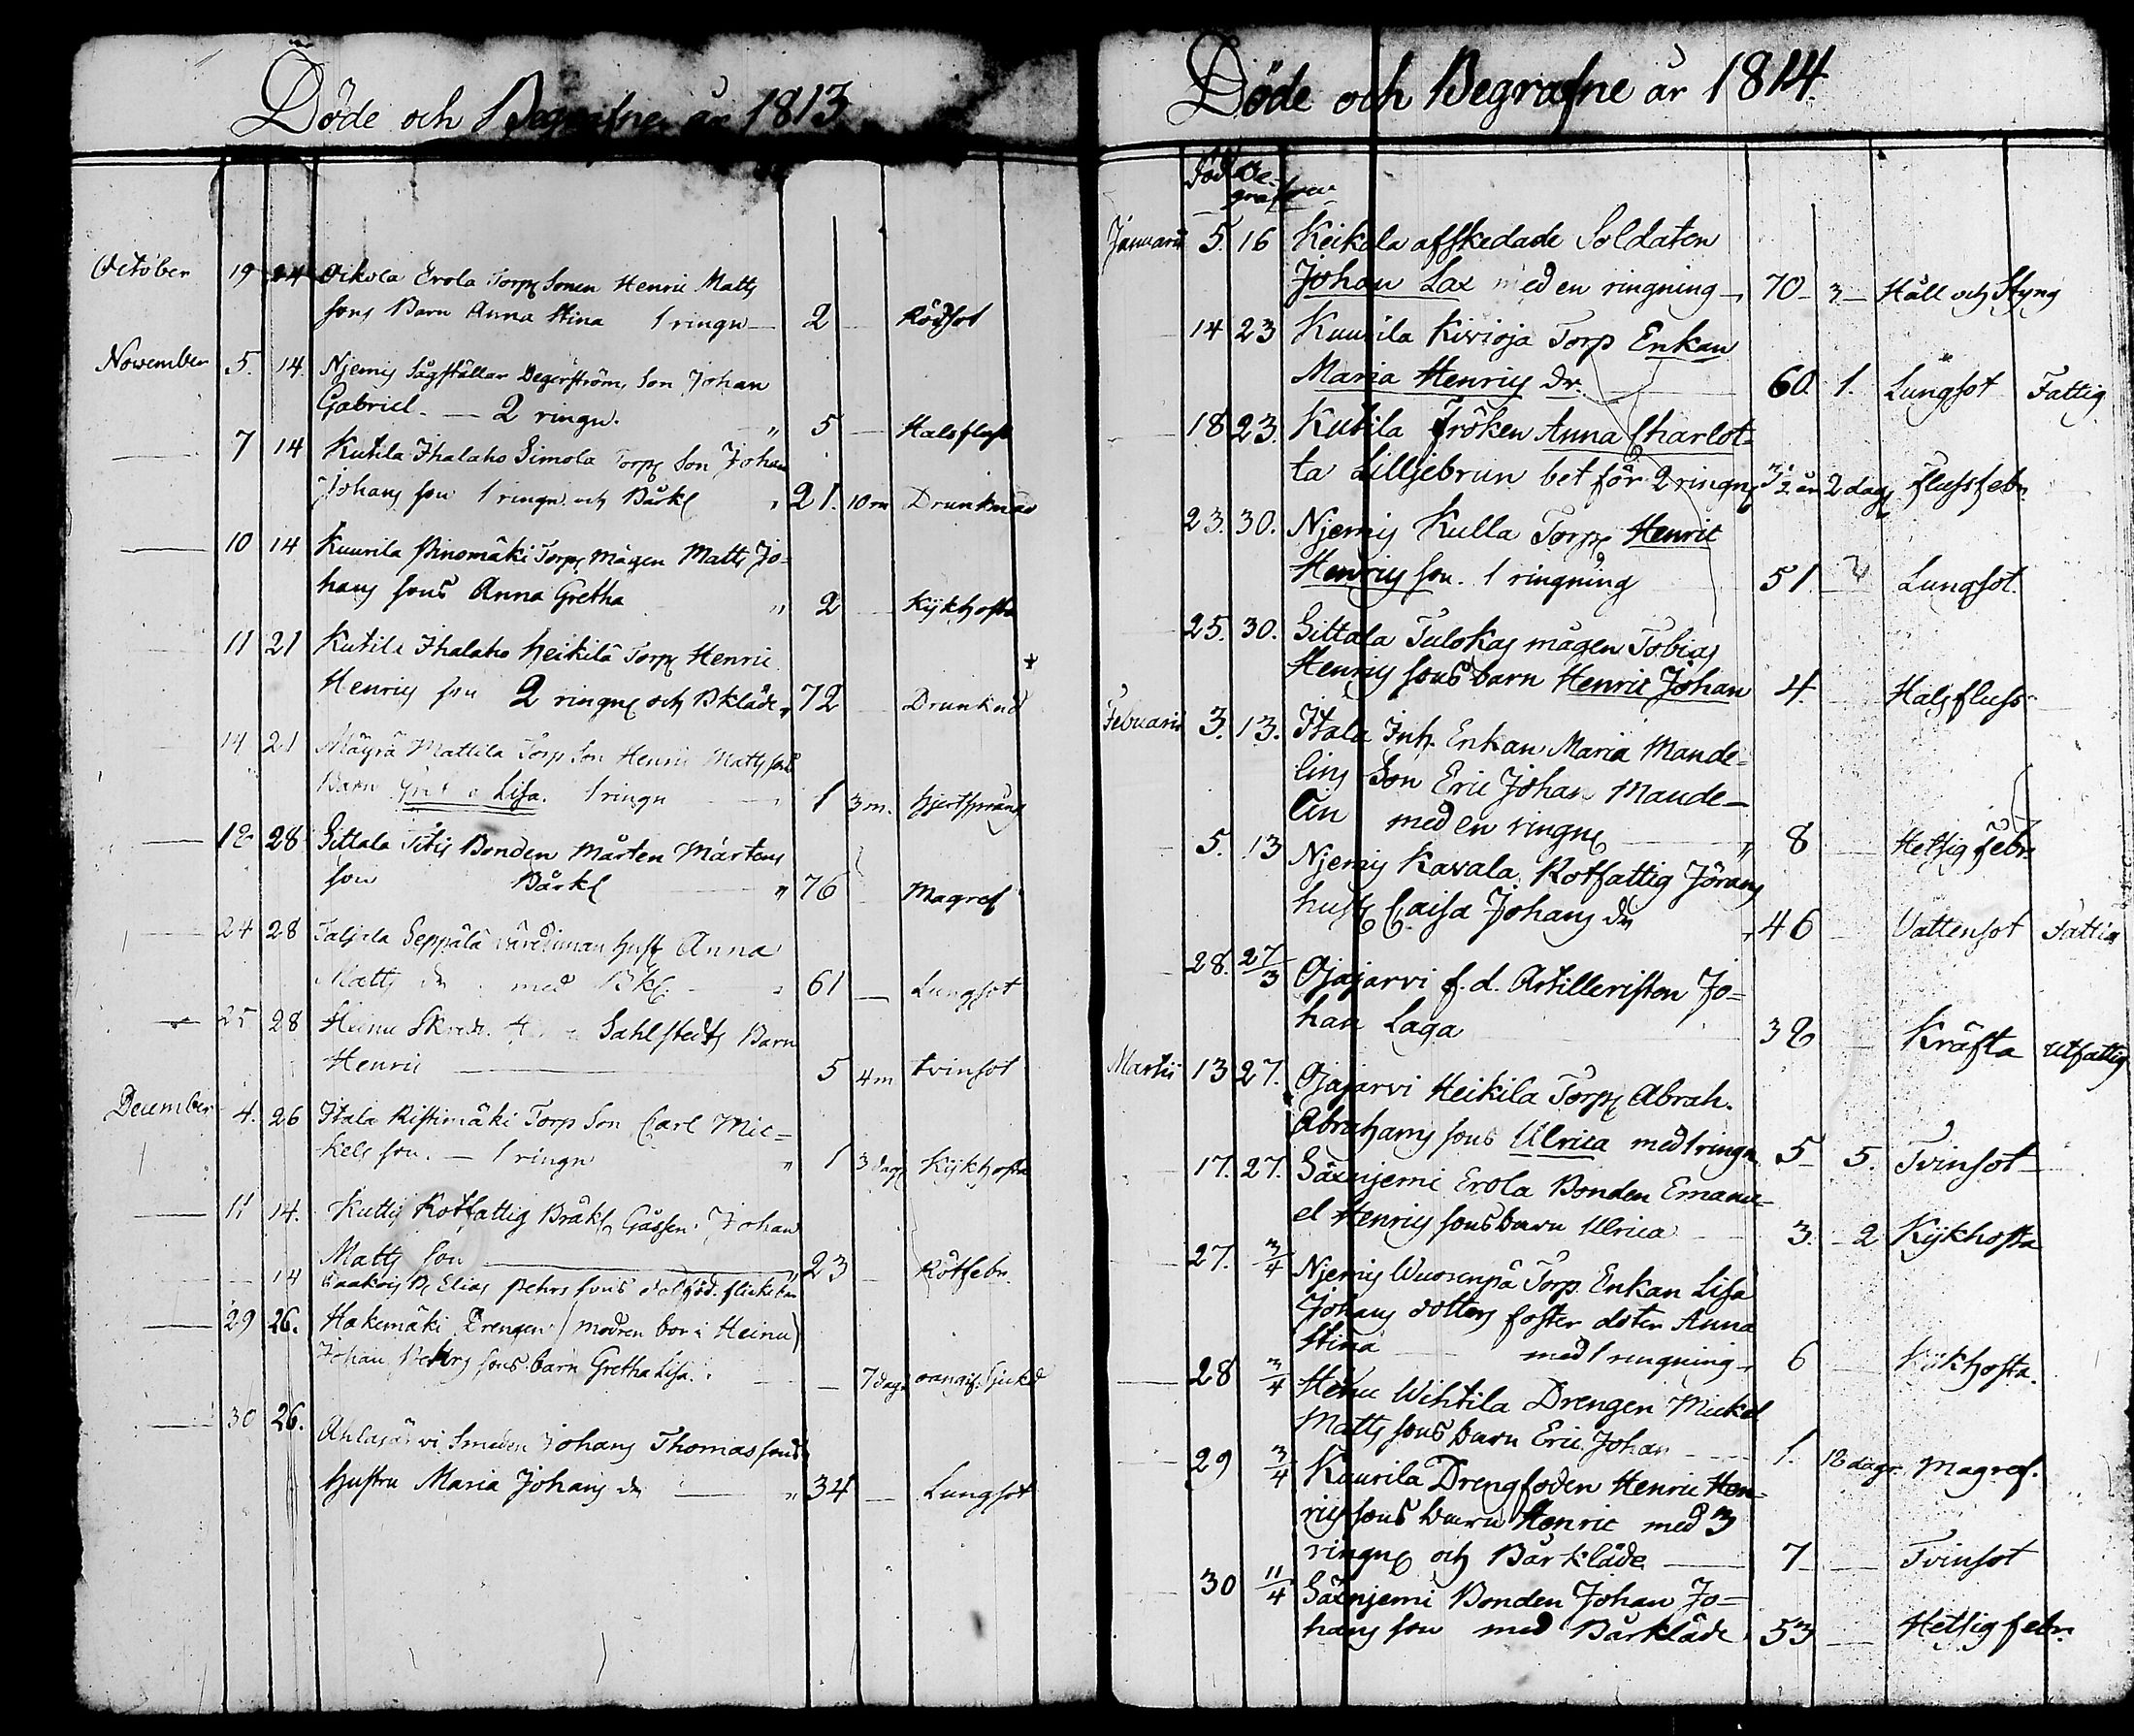 Döde och Begrafne år 1813
October 19 24 Oikola Erola Torp Sonen Henric Matts
sons Barn Anna Stina 1 ringn 2 Rödsot
November 5. 14. Njemis Sågställar Degerström, Son Johan
Gabriel. 2 ringn. " 5 Halsfluss
7 14 Kutila Ihalaho Simola Torp Son Johan
Johans son 1 ringn. och Bårkl 21. 10 m Drunknad
10 14 Kuurila Pinomäki Torp Mågen Matts Jo=
hans sons Anna Gretha " 2 Kijkhosta
11 21 Kutila Ihalaho Heikilä Torp Henric
Henrics son 2 ringn och Bkläde 72 Drunknad
14 21 Mäyrä Mattila Torp Son Henric Matts sons
Barn Lisa. 1 ringn 1 3 m. Hjertsprång
12 28 Sittala Titis Bonden Mårten Mårtens
son Bårkl " 76 Magref
24 28 Taljala Seppälä hust Anna
Matts dr. med Bkl. 61 Lungsot
25 28 Heinu Skredr. Sahlstedts Barn
Henric 5 4 m tvinsot
December 4. 26 Itala Ristimäki Torp Son Carl Mic=
kels son. 1 ringn " 1 3 dag Kijkhosta
11 14. Kuttis Rotfattig Gossen Johan
Matts son " 23 Rötfebr.
14 Elias Pehrs sons dödföd. flickebarn
29 26. Hakemäki Drengen (modren bor i Heinu)
Johan Pehrs sons barn Gretha Lisa. 7 dag
30 26. Ahlajärvi Smeden Johans Thomas sons
hustru Maria Johans dr " 34 Lungsot
Döde och Begrafne år 1814.
Död Be-
grafven
Januarii 5. 16 Keikala afskedade Soldaten
Johan Lax med en ringning 70 3 Håll och Styng
14 23 Kuurila Kivioja Torp Enkan
Maria Henrics dr. 60. 1. Lungsot Fattig
18 23. Kutila Fröken Anna Charlot=
ta Lilljebrun bet för 2 ringn 3 1/2 år 2 dag flussfebr.
23. 30. Njemis Kulla Torp Henric
Henrics son. 1 ringning 51. Lungsot.
25. 30. Sittala Tulokas mågen Tobias
Henrics sons barn Henric Johan 4. Halsfluss
Februarii 3. 13. Itala Inh. Enkan Maria Mande=
lins Son Eric Johan Mande=
lin med en ringn " 8 Hetsig febr.
5. 13 Njemis Kavala Rotfattig Jörans
hust Caisa Johans dr 46 Vattensot Fattig
28. 27/3 Ojajarvi f. d. Artilleristen Jo=
han Laga 32 Kräfta Utfattig
Martii 13 27. Ojajarvi Heikila Torp Abrah.
Abrahams sons Ulrica med 1 ringn 5 5. Tvinsot
17. 27. Säxnjemi Erola Bonden Emanu=
el Henrics sons barn Ulrica 3. 2 Kijkhosta
27. 3/4 Njemis Wuorenpä Torp. Enkan Lisa
Johans dotters foster doter Anna
Stina med 1 ringning 6 Kijkhosta.
28 3/4 Heinu Wihtila Drengen Mickel
Matts sons barn Eric Johan 1. 12 dagr. Magref.
29 3/4 Kuurila Drengfoden Henric Hen=
rics sons barn Henric med 3
ringn och Bårkläde 7 Tvinsot
30 11/4 Säxnjemi Bonden Johan Jo=
hans son med Bårkläde 53 Hetsig febr.